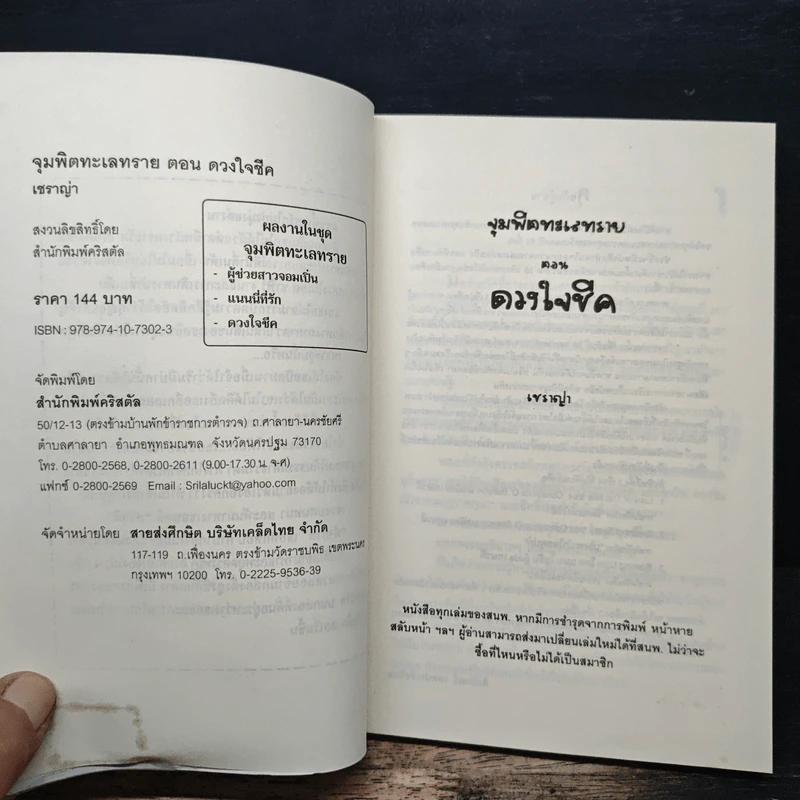 จุมพิตทะเลทราย ตอน ดวงใจชีค
เชราญ่า
สงวนลิขสิทธิ์โดย
สำนักพิมพ์คริสตัล
ราคา 144 บาท
ISBN : 978-974-10-7302-3
ผลงานในชุด
จุมพิตทะเลทราย
- ผู้ช่วยสาวจอมเปิ่น
- แนนนี่ที่รัก
- ดวงใจชีค
จัดพิมพ์โดย
สำนักพิมพ์คริสตัล
50/12-13 (ตรงข้ามบ้านพักข้าราชการตำรวจ) ถ.ศาลายา-นครชัยศรี
ตำบลศาลายา อำเภอพุทธมณฑล จังหวัดนครปฐม 73170
โทร. 0-2800-2568, 0-2800-2611 (9.00-17.30 น. จ-ศ)
แฟกซ์ 0-2800-2569 Email : Srilaluckt@yahoo.com
จัดจำหน่ายโดย สายส่งศึกษิต บริษัทเคล็ดไทย จำกัด
117-119 ถ.เฟื่องนคร ตรงข้ามวัดราชบพิธ เขตพระนคร
กรุงเทพฯ 10200 โทร. 0-2225-9536-39
จุมพิตทะเลทราย
ตอน
ดวงใจชีค
เชราญ่า
หนังสือทุกเล่มของสนพ. หากมีการชำรุดจากการพิมพ์ หน้าหาย
สลับหน้า ฯลฯ ผู้อ่านสามารถส่งมาเปลี่ยนเล่มใหม่ได้ที่สนพ. ไม่ว่าจะ
ซื้อที่ไหนหรือไม่ได้เป็นสมาชิก